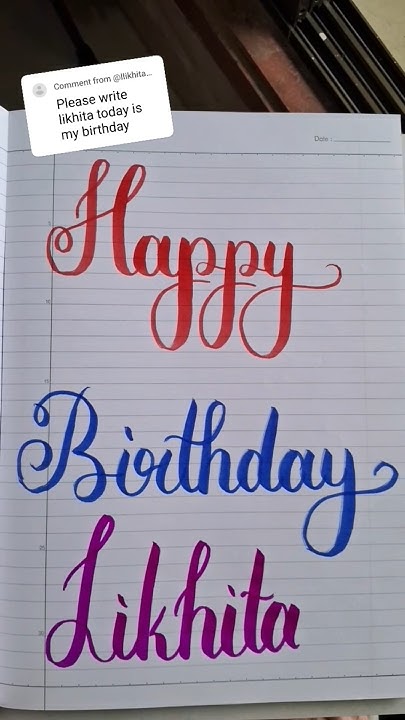 Comment from @llikhita...
Please write
likhita today is
my birthday
Date :
Happy
Birthday
Likhita